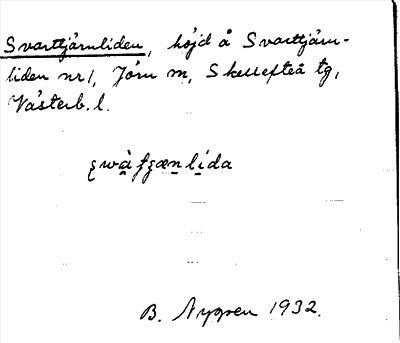 Svarttjärnliden, höjd å Svarttjärn-
liden nr 1, Jörn sn, Skellefteå tg,
Västerb. l.
B. Nygren 1932.